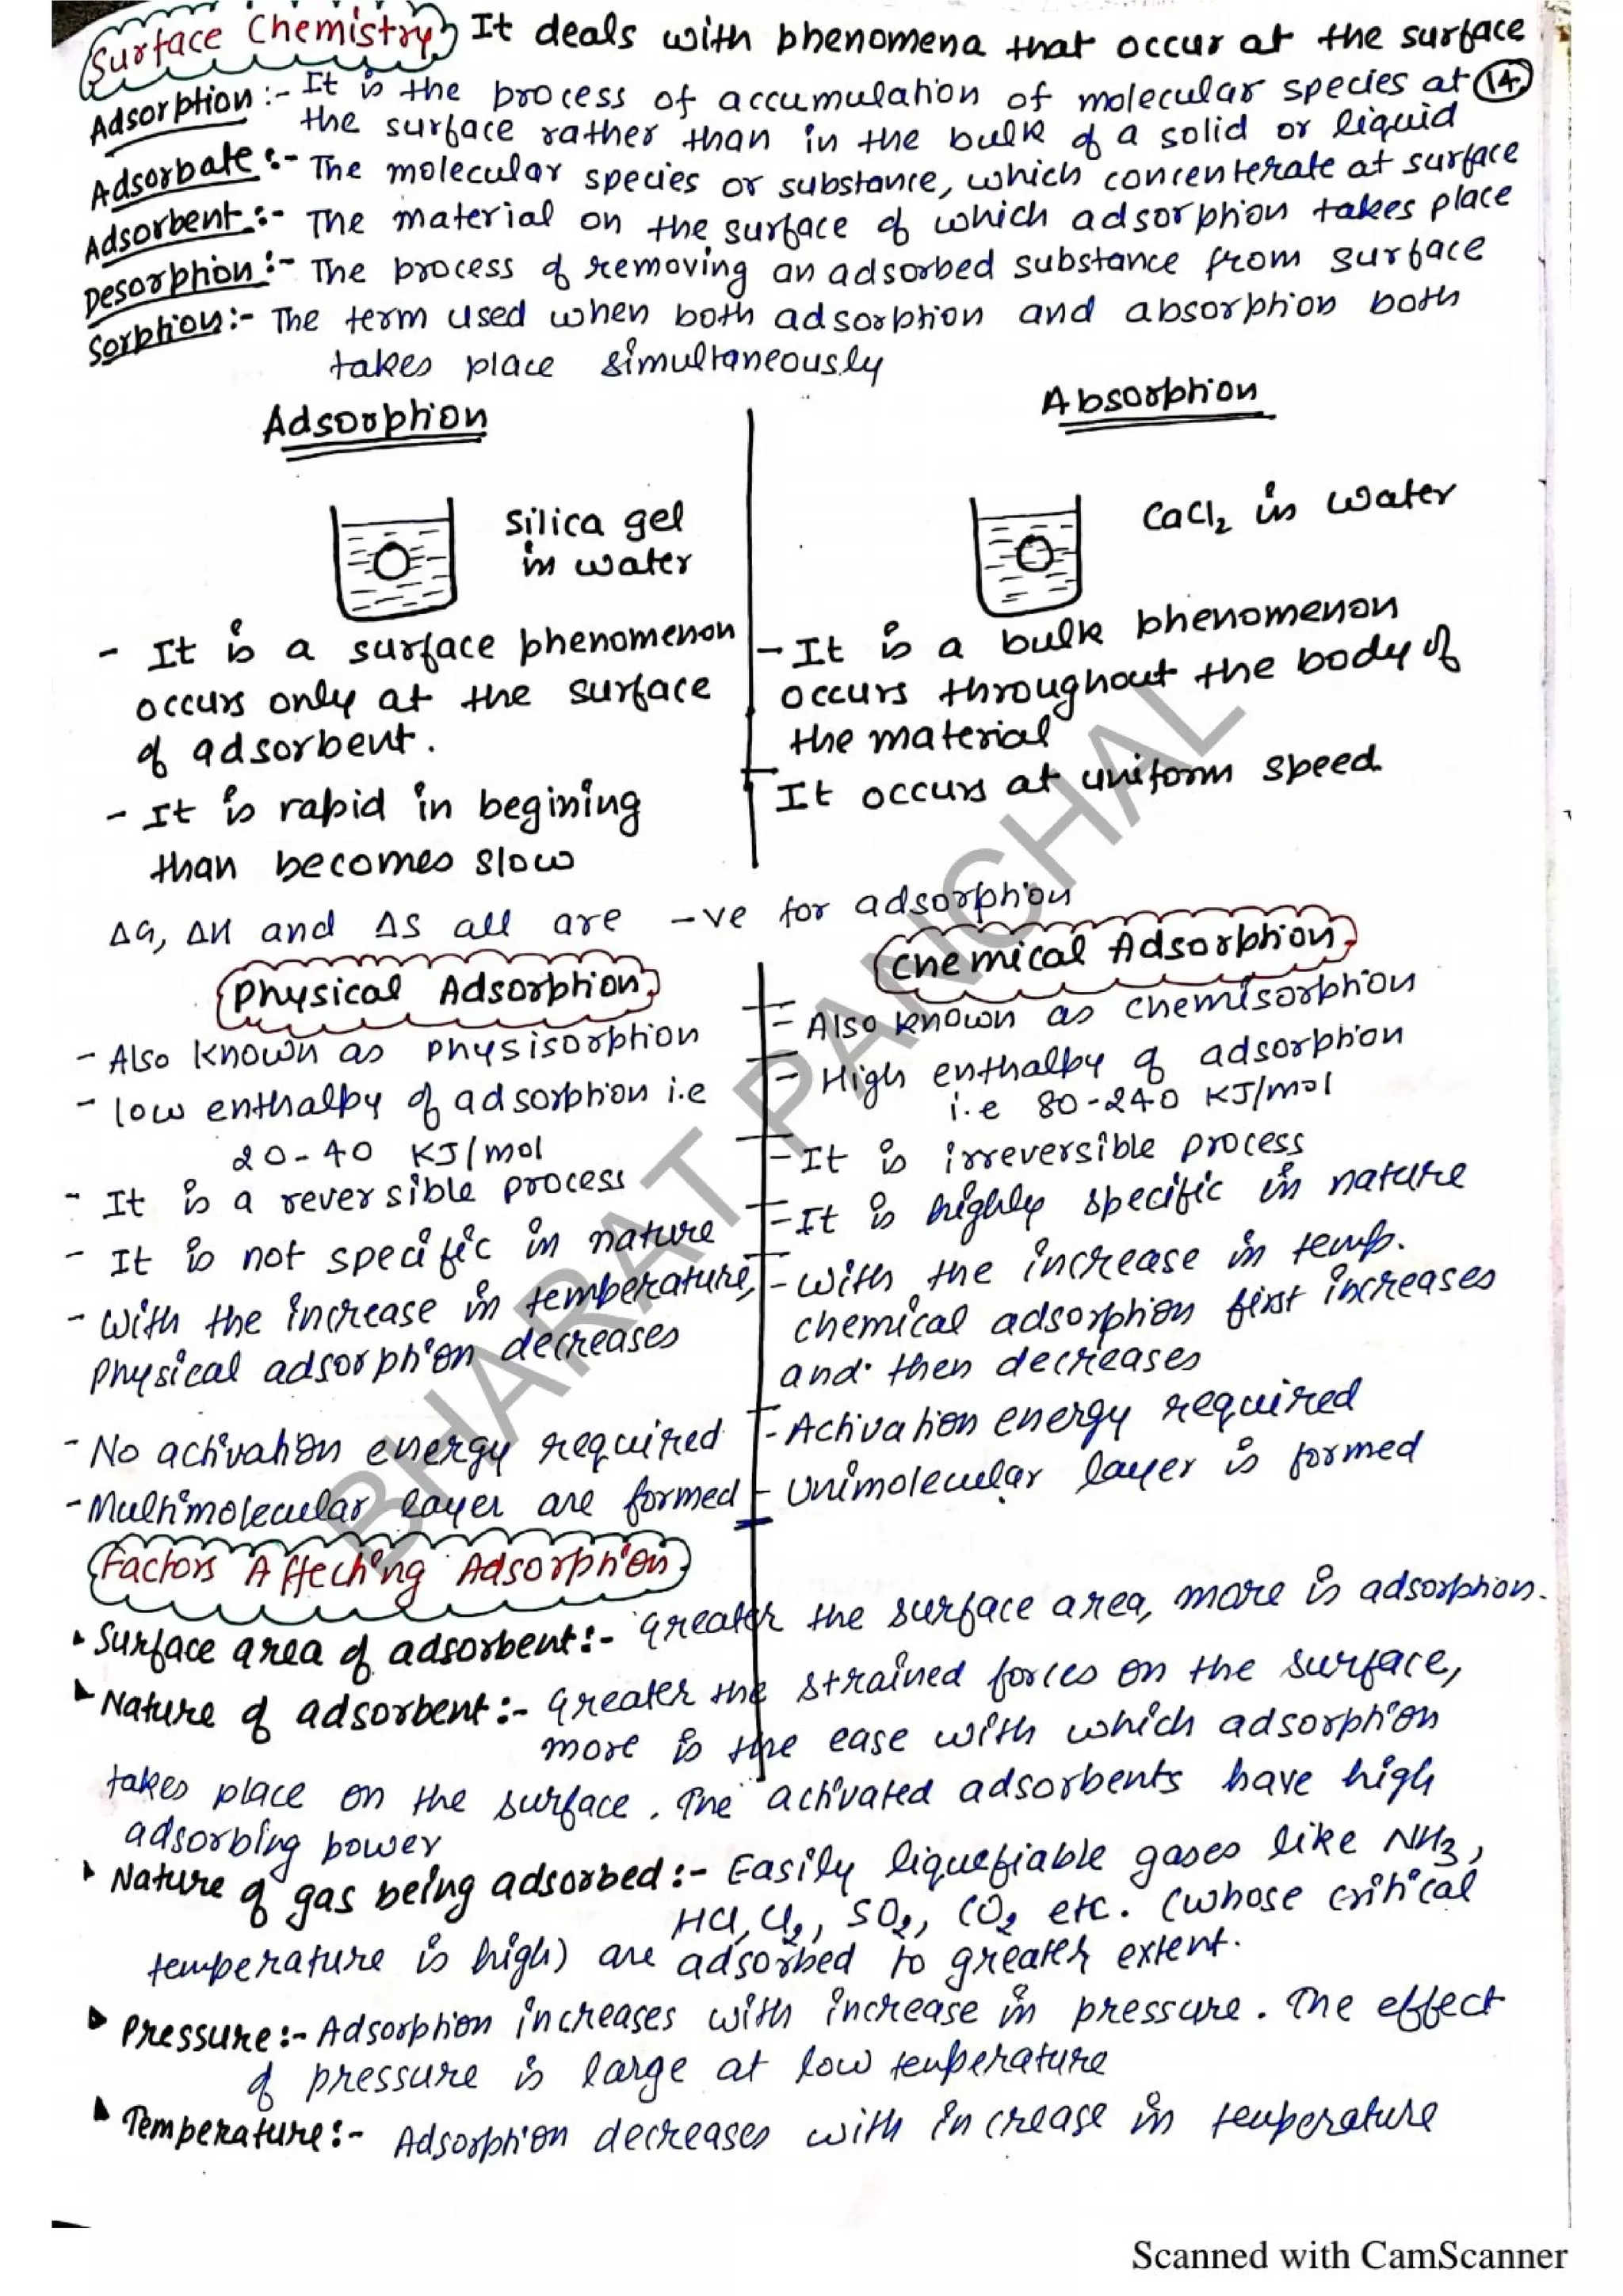 Surface Chemistry It deals with phenomena that occur at the surface
Adsorption :- It is the process of accumulation of molecular species at 14
the surface rather than in the bulk of a solid or liquid
Adsorbate :- The molecular species or substance, which concenterate at surface
Adsorbent :- The material on the surface of which adsorption takes place
Desorption :- The process of removing an adsorbed substance from surface
Sorption :- The term used when both adsorption and absorption both
takes place simultaneously
Adsorption
Silica gel
in water
- It is a surface phenomenon
occurs only at the surface
of adsorbent.
- It is rapid in begining
than becomes slow
Absorption
CaCl₂ in water
- It is a bulk phenomenon
occurs throughout the body of
the material
It occurs at uniform speed.
ΔG, ΔH and ΔS all are -ve for adsorption
Physical Adsorption
- Also known as Physisorption
- low enthalpy of adsorption i.e
20-40 KJ/mol
- It is a reversible process
- It is not specific in nature
- With the increase in temperature,
Physical adsorption decreases
- No activation energy required
- Multimolecular layer are formed
Chemical Adsorption
- Also known as chemisorption
- High enthalpy of adsorption
i.e 80-240 KJ/mol
- It is irreversible process
- It is highly specific in nature
- With the increase in temp.
chemical adsorption first increases
and then decreases
- Activation energy required
- Unimolecular layer is formed
Factors Affecting Adsorption
Surface area of adsorbent :- Greater the surface area, more is adsorption.
Nature of adsorbent :- Greater the strained forces on the surface,
more is the ease with which adsorption
takes place on the surface. The activated adsorbents have high
adsorbing power
Nature of gas being adsorbed :- Easily liquefiable gases like NH₃,
HCl, Cl₂, SO₂, CO₂ etc. (whose critical
temperature is high) are adsorbed to greater extent.
Pressure :- Adsorption increases with increase in pressure. The effect
of pressure is large at low temperature
Temperature :- Adsorption decreases with increase in temperature
BHARAT PANCHAL
Scanned with CamScanner